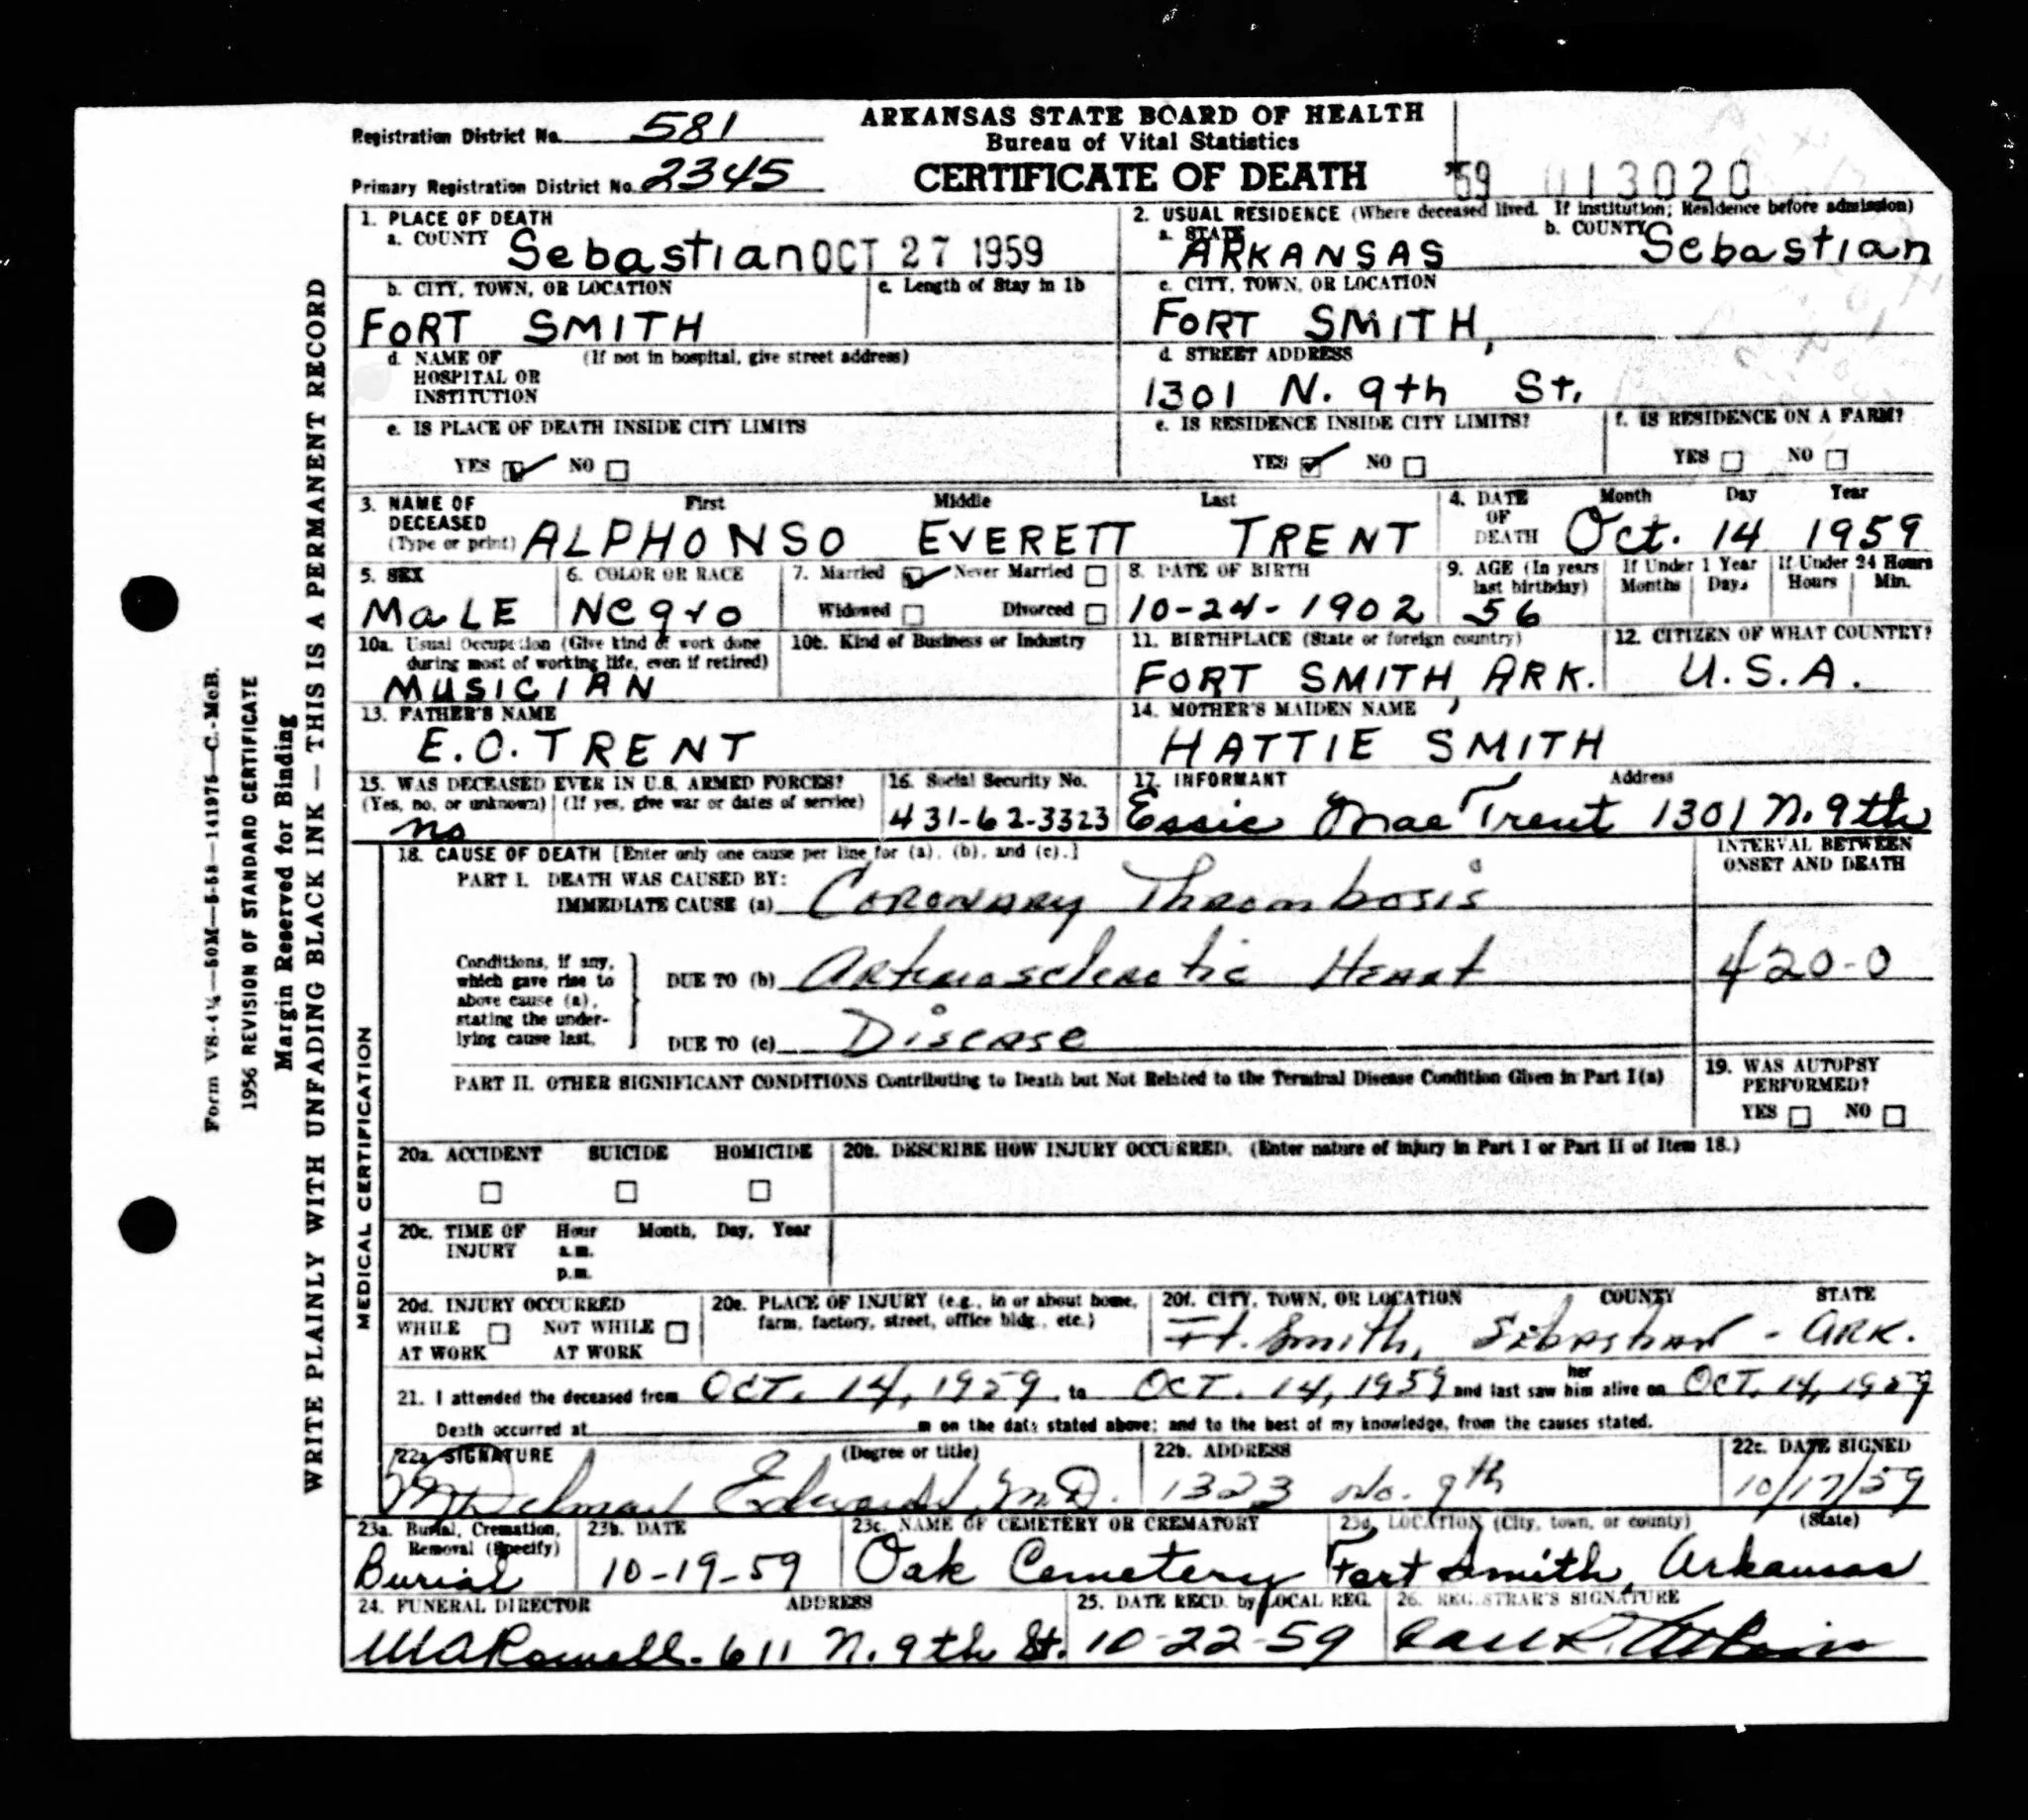 ARKANSAS STATE BOARD OF HEALTH
Bureau of Vital Statistics
CERTIFICATE OF DEATH
Registration District No. 581
Primary Registration District No. 2345
'59 013020
1. PLACE OF DEATH
a. COUNTY Sebastian OCT 27 1959
2. USUAL RESIDENCE (Where deceased lived. If institution; Residence before admission)
a. STATE ARKANSAS b. COUNTY Sebastian
b. CITY, TOWN, OR LOCATION FORT SMITH
c. Length of Stay in 1b
c. CITY, TOWN, OR LOCATION
FORT SMITH,
d. NAME OF HOSPITAL OR INSTITUTION (If not in hospital, give street address)
d. STREET ADDRESS
1301 N. 9th St.
e. IS PLACE OF DEATH INSIDE CITY LIMITS
YES ✓ NO
e. IS RESIDENCE INSIDE CITY LIMITS?
YES ✓ NO
f. IS RESIDENCE ON A FARM?
YES NO
3. NAME OF DECEASED (Type or print) First Middle Last
ALPHONSO EVERETT TRENT
4. DATE OF DEATH Month Day Year
Oct. 14 1959
5. SEX
MALE
6. COLOR OR RACE
Negro
7. Married ✓ Never Married
Widowed Divorced
8. DATE OF BIRTH
10-24-1902
9. AGE (In years last birthday)
56
If Under 1 Year Months Days
If Under 24 Hours Hours Min.
10a. Usual Occupation (Give kind of work done during most of working life, even if retired)
MUSICIAN
10b. Kind of Business or Industry
11. BIRTHPLACE (State or foreign country)
FORT SMITH, ARK.
12. CITIZEN OF WHAT COUNTRY?
U.S.A.
13. FATHER'S NAME
E.O. TRENT
14. MOTHER'S MAIDEN NAME
HATTIE SMITH
15. WAS DECEASED EVER IN U.S. ARMED FORCES?
(Yes, no, or unknown) (If yes, give war or dates of service)
no
16. Social Security No.
431-62-3323
17. INFORMANT Address
Essie Mae Trent 1301 N. 9th
18. CAUSE OF DEATH [Enter only one cause per line for (a), (b), and (c).]
INTERVAL BETWEEN ONSET AND DEATH
PART I. DEATH WAS CAUSED BY:
IMMEDIATE CAUSE (a) Coronary Thrombosis
Conditions, if any, which gave rise to above cause (a), stating the underlying cause last.
DUE TO (b) Arteriosclerotic Heart
420-0
DUE TO (c) Disease
PART II. OTHER SIGNIFICANT CONDITIONS Contributing to Death but Not Related to the Terminal Disease Condition Given in Part I(a)
19. WAS AUTOPSY PERFORMED?
YES NO
20a. ACCIDENT SUICIDE HOMICIDE
20b. DESCRIBE HOW INJURY OCCURRED. (Enter nature of injury in Part I or Part II of Item 18.)
20c. TIME OF INJURY Hour a.m. p.m. Month, Day, Year
20d. INJURY OCCURRED
WHILE AT WORK NOT WHILE AT WORK
20e. PLACE OF INJURY (e.g., in or about home, farm, factory, street, office bldg., etc.)
20f. CITY, TOWN, OR LOCATION COUNTY STATE
Ft. Smith, Sebastian - ARK.
21. I attended the deceased from OCT. 14, 1959 to OCT. 14, 1959 and last saw her him alive on OCT. 14, 1959
Death occurred at m on the date stated above; and to the best of my knowledge, from the causes stated.
22a. SIGNATURE (Degree or title)
Edwards M.D.
22b. ADDRESS
1323 No. 9th
22c. DATE SIGNED
10/17/59
23a. Burial, Cremation, Removal (Specify)
Burial
23b. DATE
10-19-59
23c. NAME OF CEMETERY OR CREMATORY
Oak Cemetery
23d. LOCATION (City, town, or county) (State)
Fort Smith, Arkansas
24. FUNERAL DIRECTOR ADDRESS
611 N. 9th St.
25. DATE RECD. by LOCAL REG.
10-22-59
26. REGISTRAR'S SIGNATURE
MEDICAL CERTIFICATION
WRITE PLAINLY WITH UNFADING BLACK INK — THIS IS A PERMANENT RECORD
Margin Reserved for Binding
1956 REVISION OF STANDARD CERTIFICATE
Form VS-4¼—50M—5-58—141975—C.-McB.